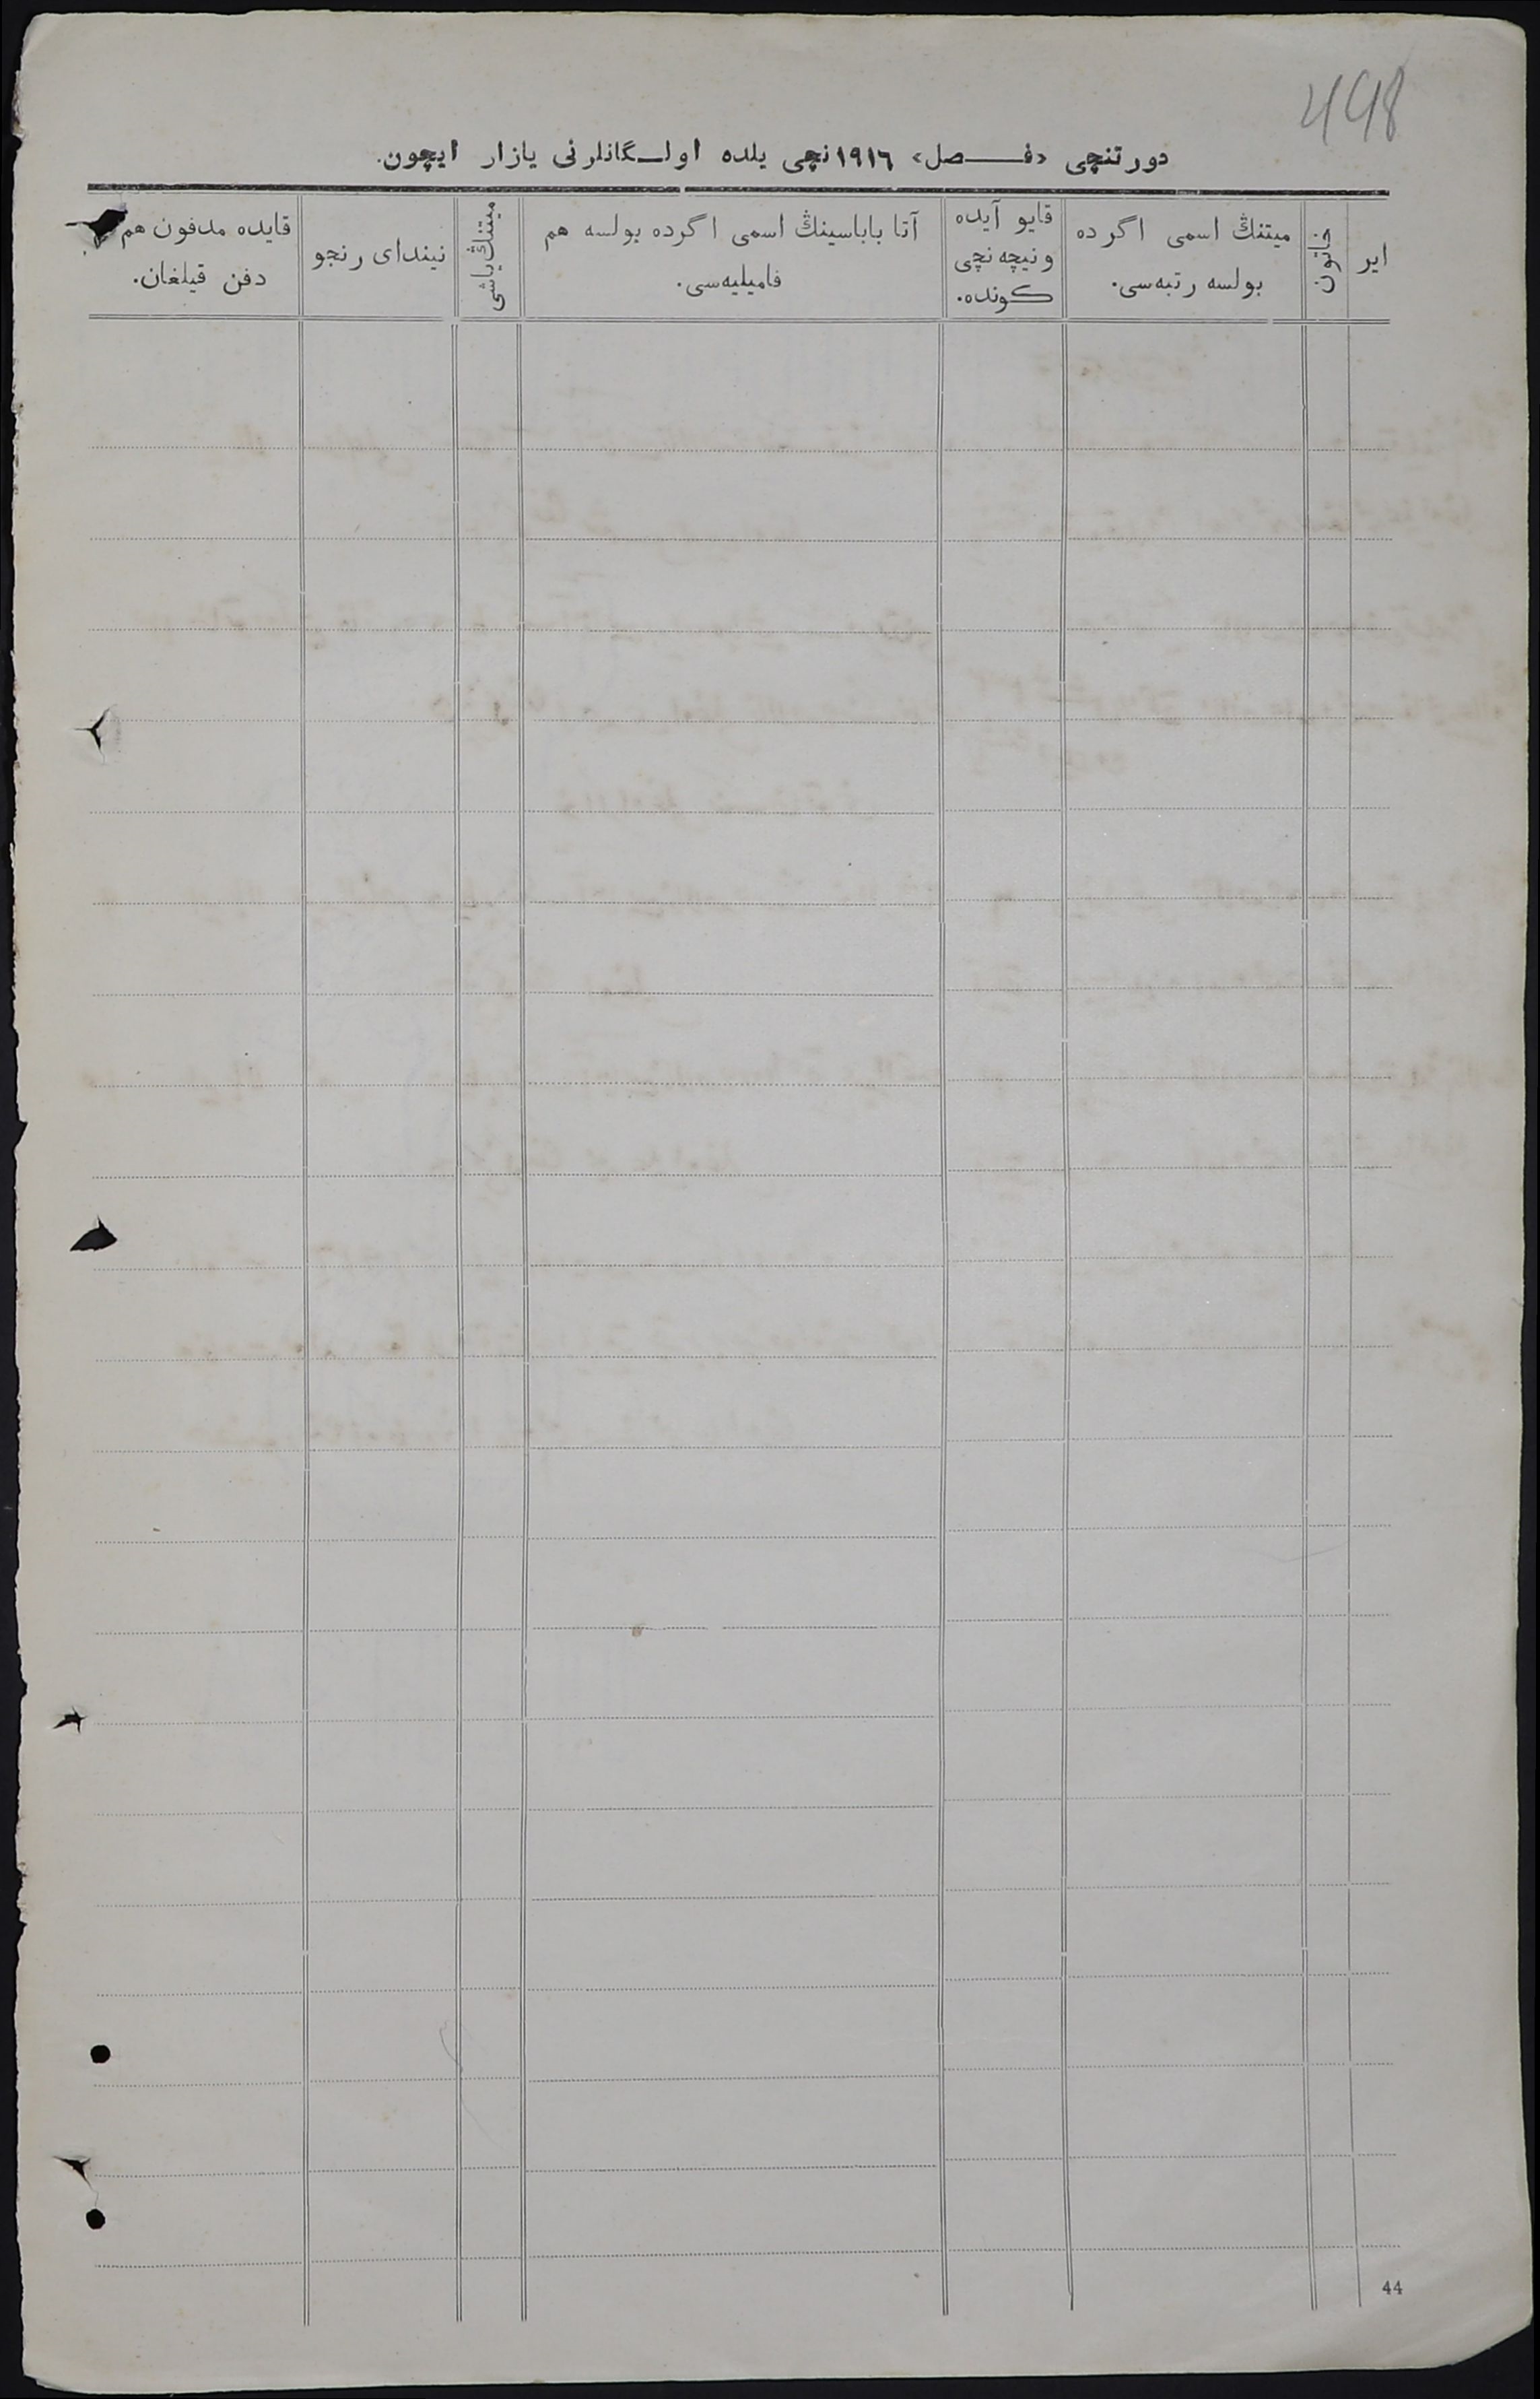 498
دورتنچی «فـــصل» ١٩١٦نچی یلده اولـگانلرنی یازار ایچون.
ایر
خاتون
میتنڭ اسمی اگرده
بولسه رتبه‌سی.
قایو آیده
ونیچه نچی
کونده.
آتا باباسینڭ اسمی اگرده بولسه هم
فامیلیه‌سی.
میتنڭ یاشی
نیندای رنجو
قایده مدفون هم
دفن قیلغان.
44